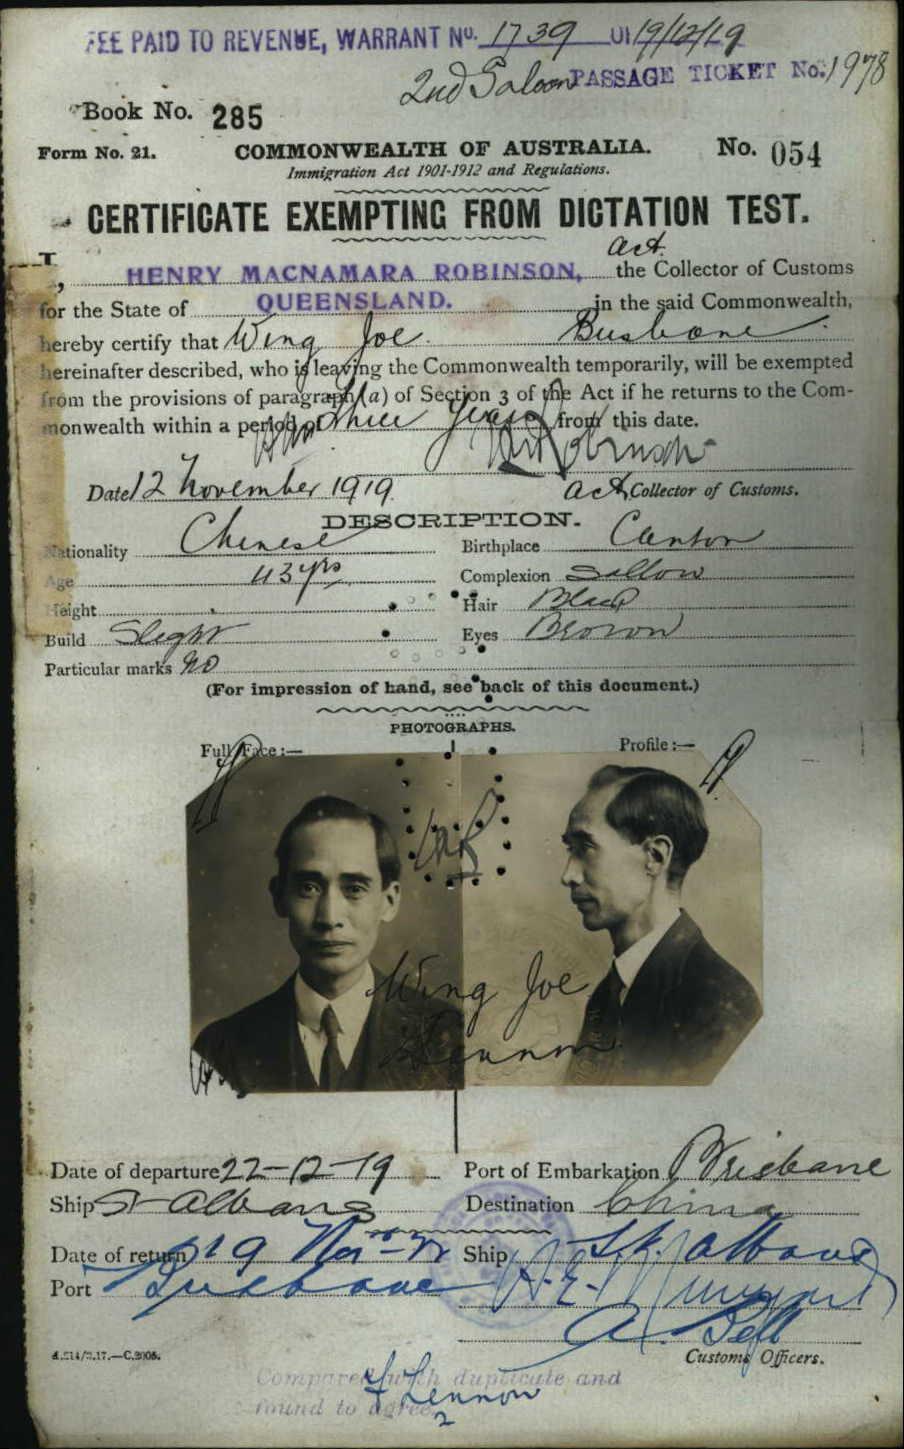 FEE PAID TO REVENUE, WARRANT No. 1739 OF 19/12/19
2nd Saloon PASSAGE TICKET No. 1978
Book No. 285
Form No. 21. COMMONWEALTH OF AUSTRALIA. No. 054
Immigration Act 1901-1912 and Regulations.
CERTIFICATE EXEMPTING FROM DICTATION TEST.
I, HENRY MACNAMARA ROBINSON, Act. the Collector of Customs
for the State of QUEENSLAND. in the said Commonwealth,
hereby certify that Wing Joe. Brisbane
hereinafter described, who is leaving the Commonwealth temporarily, will be exempted
from the provisions of paragraph (a) of Section 3 of the Act if he returns to the Com-
monwealth within a period of Three Years from this date.
Date 12 November 1919. Act Collector of Customs.
DESCRIPTION.
Nationality Chinese Birthplace Canton
Age 43 yrs Complexion Sallow
Height Hair Black
Build Slight Eyes Brown
Particular marks no
(For impression of hand, see back of this document.)
PHOTOGRAPHS.
Full Face:— Profile:—
Wing Joe
Lennon
Date of departure 22-12-19 Port of Embarkation Brisbane
Ship St Albans Destination China
Date of return 19 Ship St. Albans
Port Brisbane
A. Bell
Customs Officers.
Compared with duplicate and
found to agree.
F Lennon